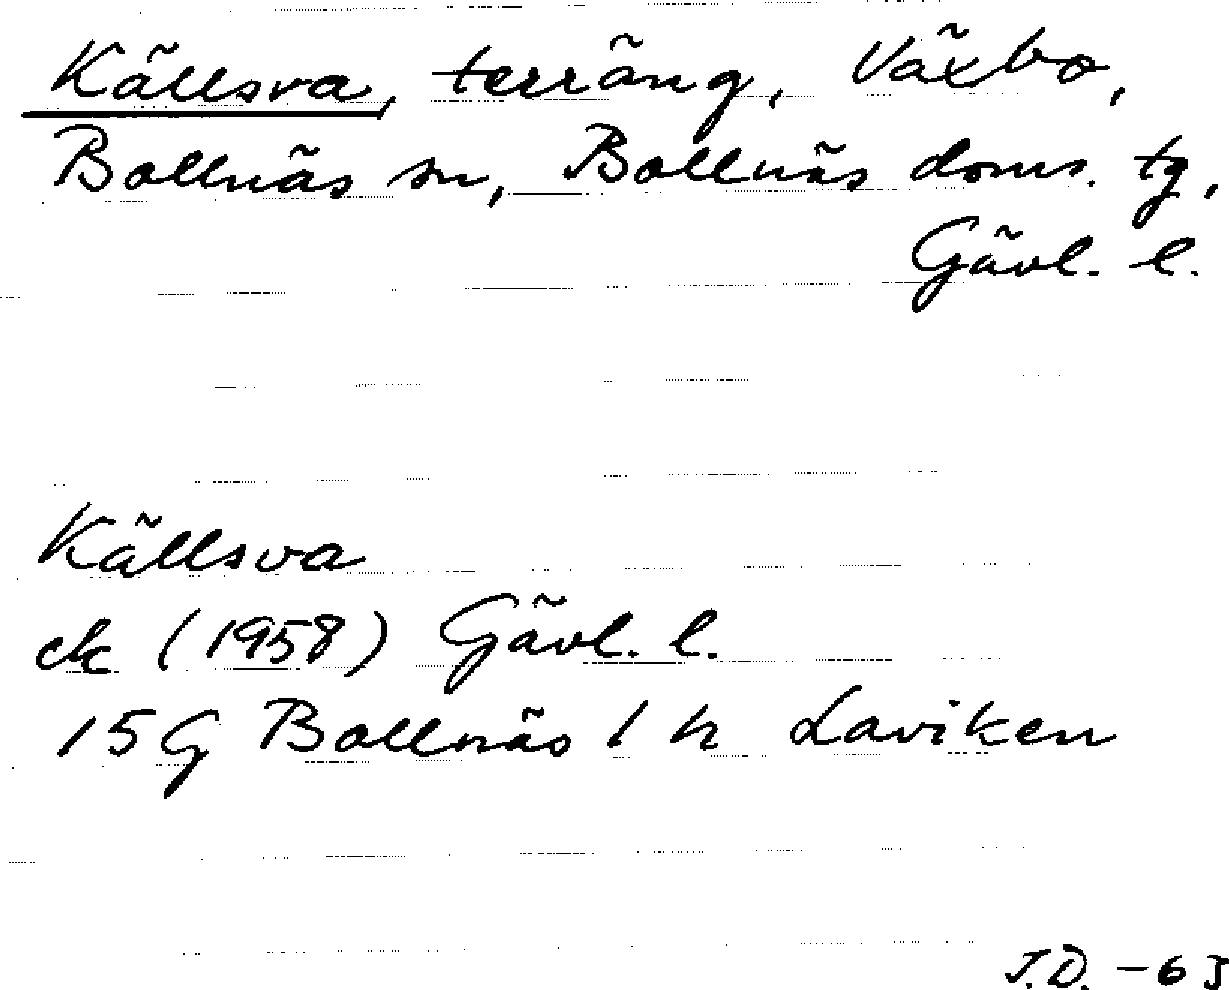 Källsva, terräng, Växbo,
Bollnäs sn, Bollnäs doms. tg,
Gävl. l.
Källsva
ek (1958) Gävl. l.
15G Bollnäs 1 h Laviken
J.D. -63